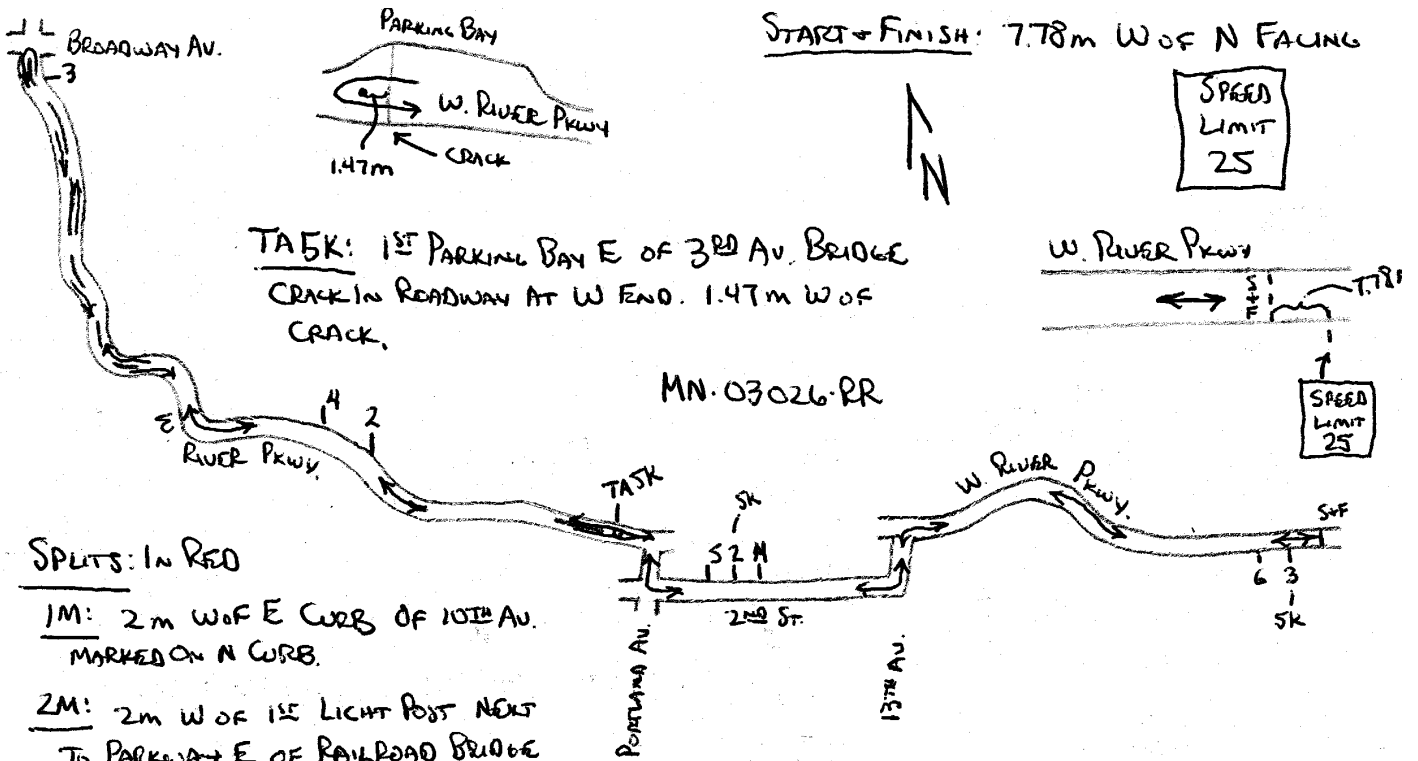 BROADWAY AV.
3
PARKING BAY
W. RIVER PKWY
1.47m
CRACK
START + FINISH: 7.78m W OF N FACING
SPEED
LIMIT
25
N
TA5K: 1ST PARKING BAY E OF 3RD AV. BRIDGE
CRACK IN ROADWAY AT W END. 1.47m W OF
CRACK.
W. RIVER PKWY
S+F
7.78
SPEED
LIMIT
25
MN·03026·RR
4
2
3
RIVER PKWY.
TA 5K
5K
5 2 M
2ND ST.
PORTLAND AV.
13TH AV.
W. RIVER PKWY.
S+F
6 3
5K
SPLITS: IN RED
1M: 2m W OF E CURB OF 10TH AV.
MARKED ON N CURB.
2M: 2m W OF 1ST LIGHT POST NEXT
TO PARKWAY E OF RAILROAD BRIDGE